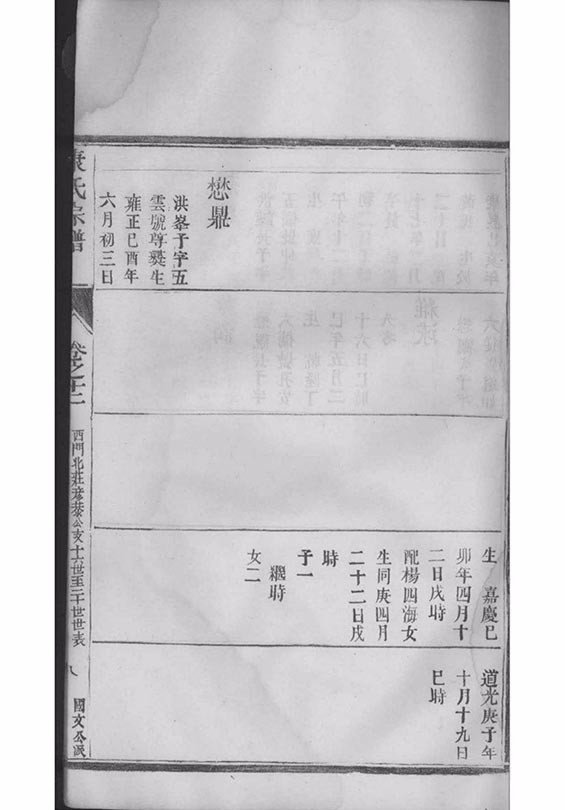 懋鼎
洪峯子字五
雲號尊爕生
雍正己酉年
六月初三日
生　嘉慶己
卯年四月十
二日戌時
配楊四海女
生同庚四月
二十二日戌
時
子一
繼時
女二
道光庚子年
十月十九日
巳時
康氏宗譜
卷之十二
西門北莊彦恭公支十六世至二十世世表
八
國文公派